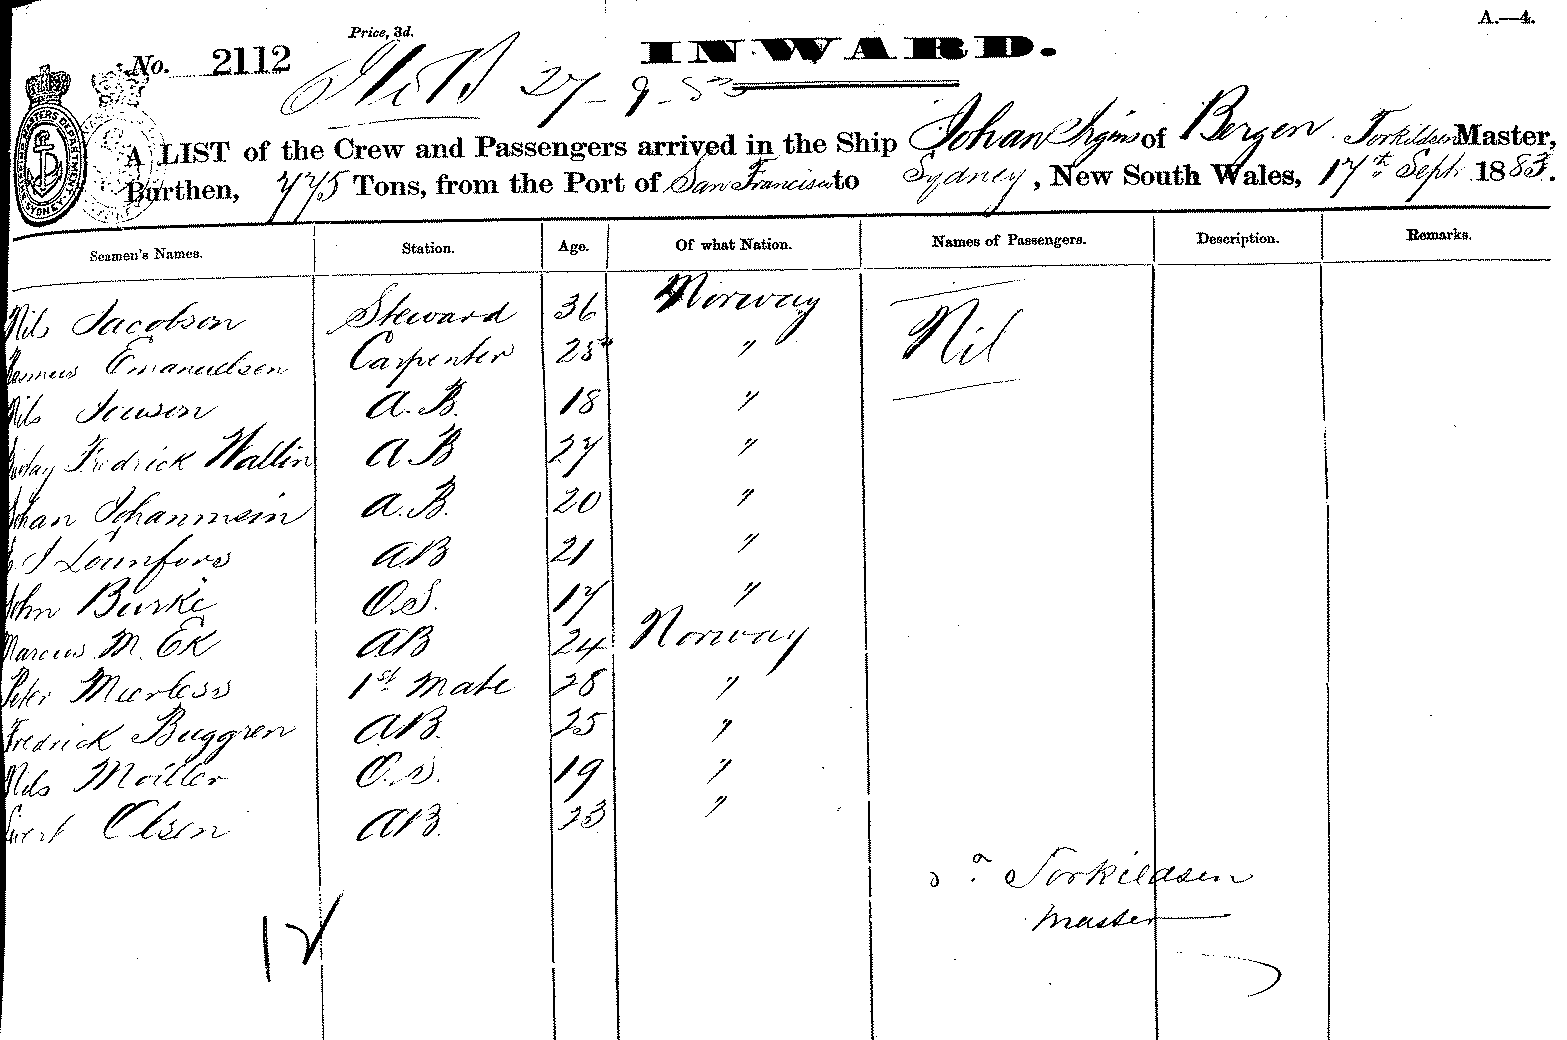 A.—4.
Price, 3d.
INWARD.
No. 2112
27-9-83
A LIST of the Crew and Passengers arrived in the Ship Johan Irgins of Bergen Torkildsen Master,
Burthen, 775 Tons, from the Port of San Francisco to Sydney, New South Wales, 17th Sept 1883.
Seamen's Names. Station. Age. Of what Nation. Names of Passengers. Description. Remarks.
Nils Jacobson Steward 36 Norway Nil
Rasmus Emanuelsen Carpenter 25 "
Nils A.B. 18 "
Fredrick Wallin AB 27 "
Johan A.B. 20 "
AB 21 "
John Burke O.S. 17 "
Marcus M. Ek AB 24 Norway
Peter 1st Mate 28 "
Fredrick Buggren AB. 25 "
Nils Moiller O.S. 19 "
Olsen AB. 23 "
Torkildsen
Master
12